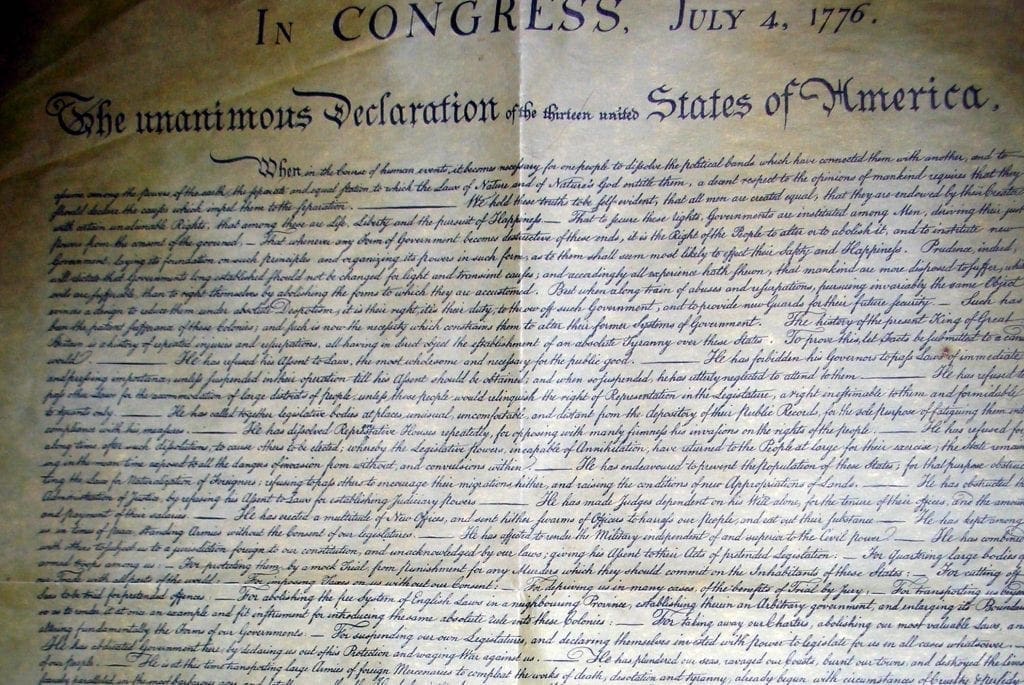 IN CONGRESS, JULY 4, 1776.
The unanimous Declaration of the thirteen united States of America,
When in the Course of human events, it becomes necessary for one people to dissolve the political bands which have connected them with another, and to
assume among the powers of the earth, the separate and equal station to which the Laws of Nature and of Nature's God entitle them, a decent respect to the opinions of mankind requires that they
should declare the causes which impel them to the separation. ——— We hold these truths to be self-evident, that all men are created equal, that they are endowed by their Creator
with certain unalienable Rights, that among these are Life, Liberty and the pursuit of Happiness. — That to secure these rights, Governments are instituted among Men, deriving their just
powers from the consent of the governed, — That whenever any Form of Government becomes destructive of these ends, it is the Right of the People to alter or to abolish it, and to institute new
Government, laying its foundation on such principles and organizing its powers in such form, as to them shall seem most likely to effect their Safety and Happiness. Prudence, indeed,
will dictate that Governments long established should not be changed for light and transient causes; and accordingly all experience hath shewn, that mankind are more disposed to suffer, while
evils are sufferable, than to right themselves by abolishing the forms to which they are accustomed. But when a long train of abuses and usurpations, pursuing invariably the same Object
evinces a design to reduce them under absolute Despotism, it is their right, it is their duty, to throw off such Government, and to provide new Guards for their future security. — Such has
been the patient sufferance of these Colonies; and such is now the necessity which constrains them to alter their former Systems of Government. The history of the present King of Great
Britain is a history of repeated injuries and usurpations, all having in direct object the establishment of an absolute Tyranny over these States. To prove this, let Facts be submitted to a candid
world. ——— He has refused his Assent to Laws, the most wholesome and necessary for the public good. ——— He has forbidden his Governors to pass Laws of immediate
and pressing importance, unless suspended in their operation till his Assent should be obtained; and when so suspended, he has utterly neglected to attend to them. ——— He has refused to
pass other Laws for the accommodation of large districts of people, unless those people would relinquish the right of Representation in the Legislature, a right inestimable to them and formidable
to tyrants only. ——— He has called together legislative bodies at places unusual, uncomfortable, and distant from the depository of their public Records, for the sole purpose of fatiguing them into
compliance with his measures. ——— He has dissolved Representative Houses repeatedly, for opposing with manly firmness his invasions on the rights of the people. ——— He has refused for
a long time, after such dissolutions, to cause others to be elected; whereby the Legislative powers, incapable of Annihilation, have returned to the People at large for their exercise; the State remain
ing in the mean time exposed to all the dangers of invasion from without, and convulsions within. ——— He has endeavoured to prevent the population of these States; for that purpose obstruc
ting the Laws for Naturalization of Foreigners; refusing to pass others to encourage their migrations hither, and raising the conditions of new Appropriations of Lands. ——— He has obstructed the
Administration of Justice, by refusing his Assent to Laws for establishing Judiciary powers. ——— He has made Judges dependent on his Will alone, for the tenure of their offices, and the amount
and payment of their salaries. ——— He has erected a multitude of New Offices, and sent hither swarms of Officers to harrass our people, and eat out their substance. ——— He has kept among
us, in times of peace, Standing Armies without the Consent of our legislatures. ——— He has affected to render the Military independent of and superior to the Civil power. ——— He has combined
with others to subject us to a jurisdiction foreign to our constitution, and unacknowledged by our laws; giving his Assent to their Acts of pretended Legislation: — For Quartering large bodies of
armed troops among us: — For protecting them, by a mock Trial, from punishment for any Murders which they should commit on the Inhabitants of these States: — For cutting off
our Trade with all parts of the world: — For imposing Taxes on us without our Consent: — For depriving us in many cases, of the benefits of Trial by jury: — For transporting us beyond
Seas to be tried for pretended offences — For abolishing the free System of English Laws in a neighbouring Province, establishing therein an Arbitrary government, and enlarging its Boundaries
so as to render it at once an example and fit instrument for introducing the same absolute rule into these Colonies: — For taking away our Charters, abolishing our most valuable Laws, and
altering fundamentally the Forms of our Governments: — For suspending our own Legislatures, and declaring themselves invested with power to legislate for us in all cases whatsoever.
He has abdicated Government here, by declaring us out of his Protection and waging War against us. — He has plundered our seas, ravaged our Coasts, burnt our towns, and destroyed the lives
of our people. — He is at this time transporting large Armies of foreign Mercenaries to compleat the works of death, desolation and tyranny, already begun with circumstances of Cruelty & perfidy